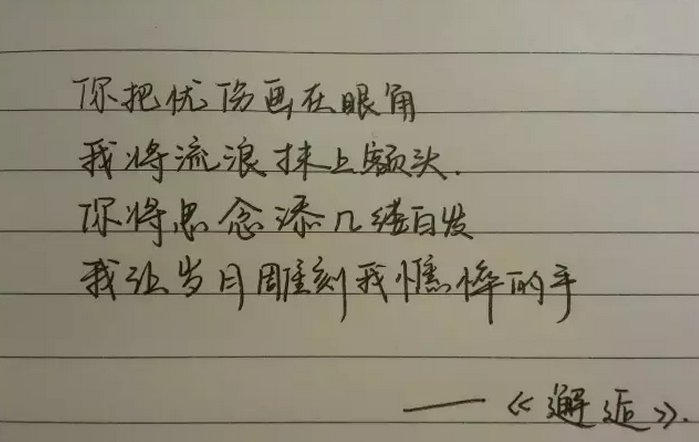 你把忧伤画在眼角
我将流浪抹上额头.
你将思念添几缕白发
我让岁月雕刻我憔悴的手
——《邂逅》.